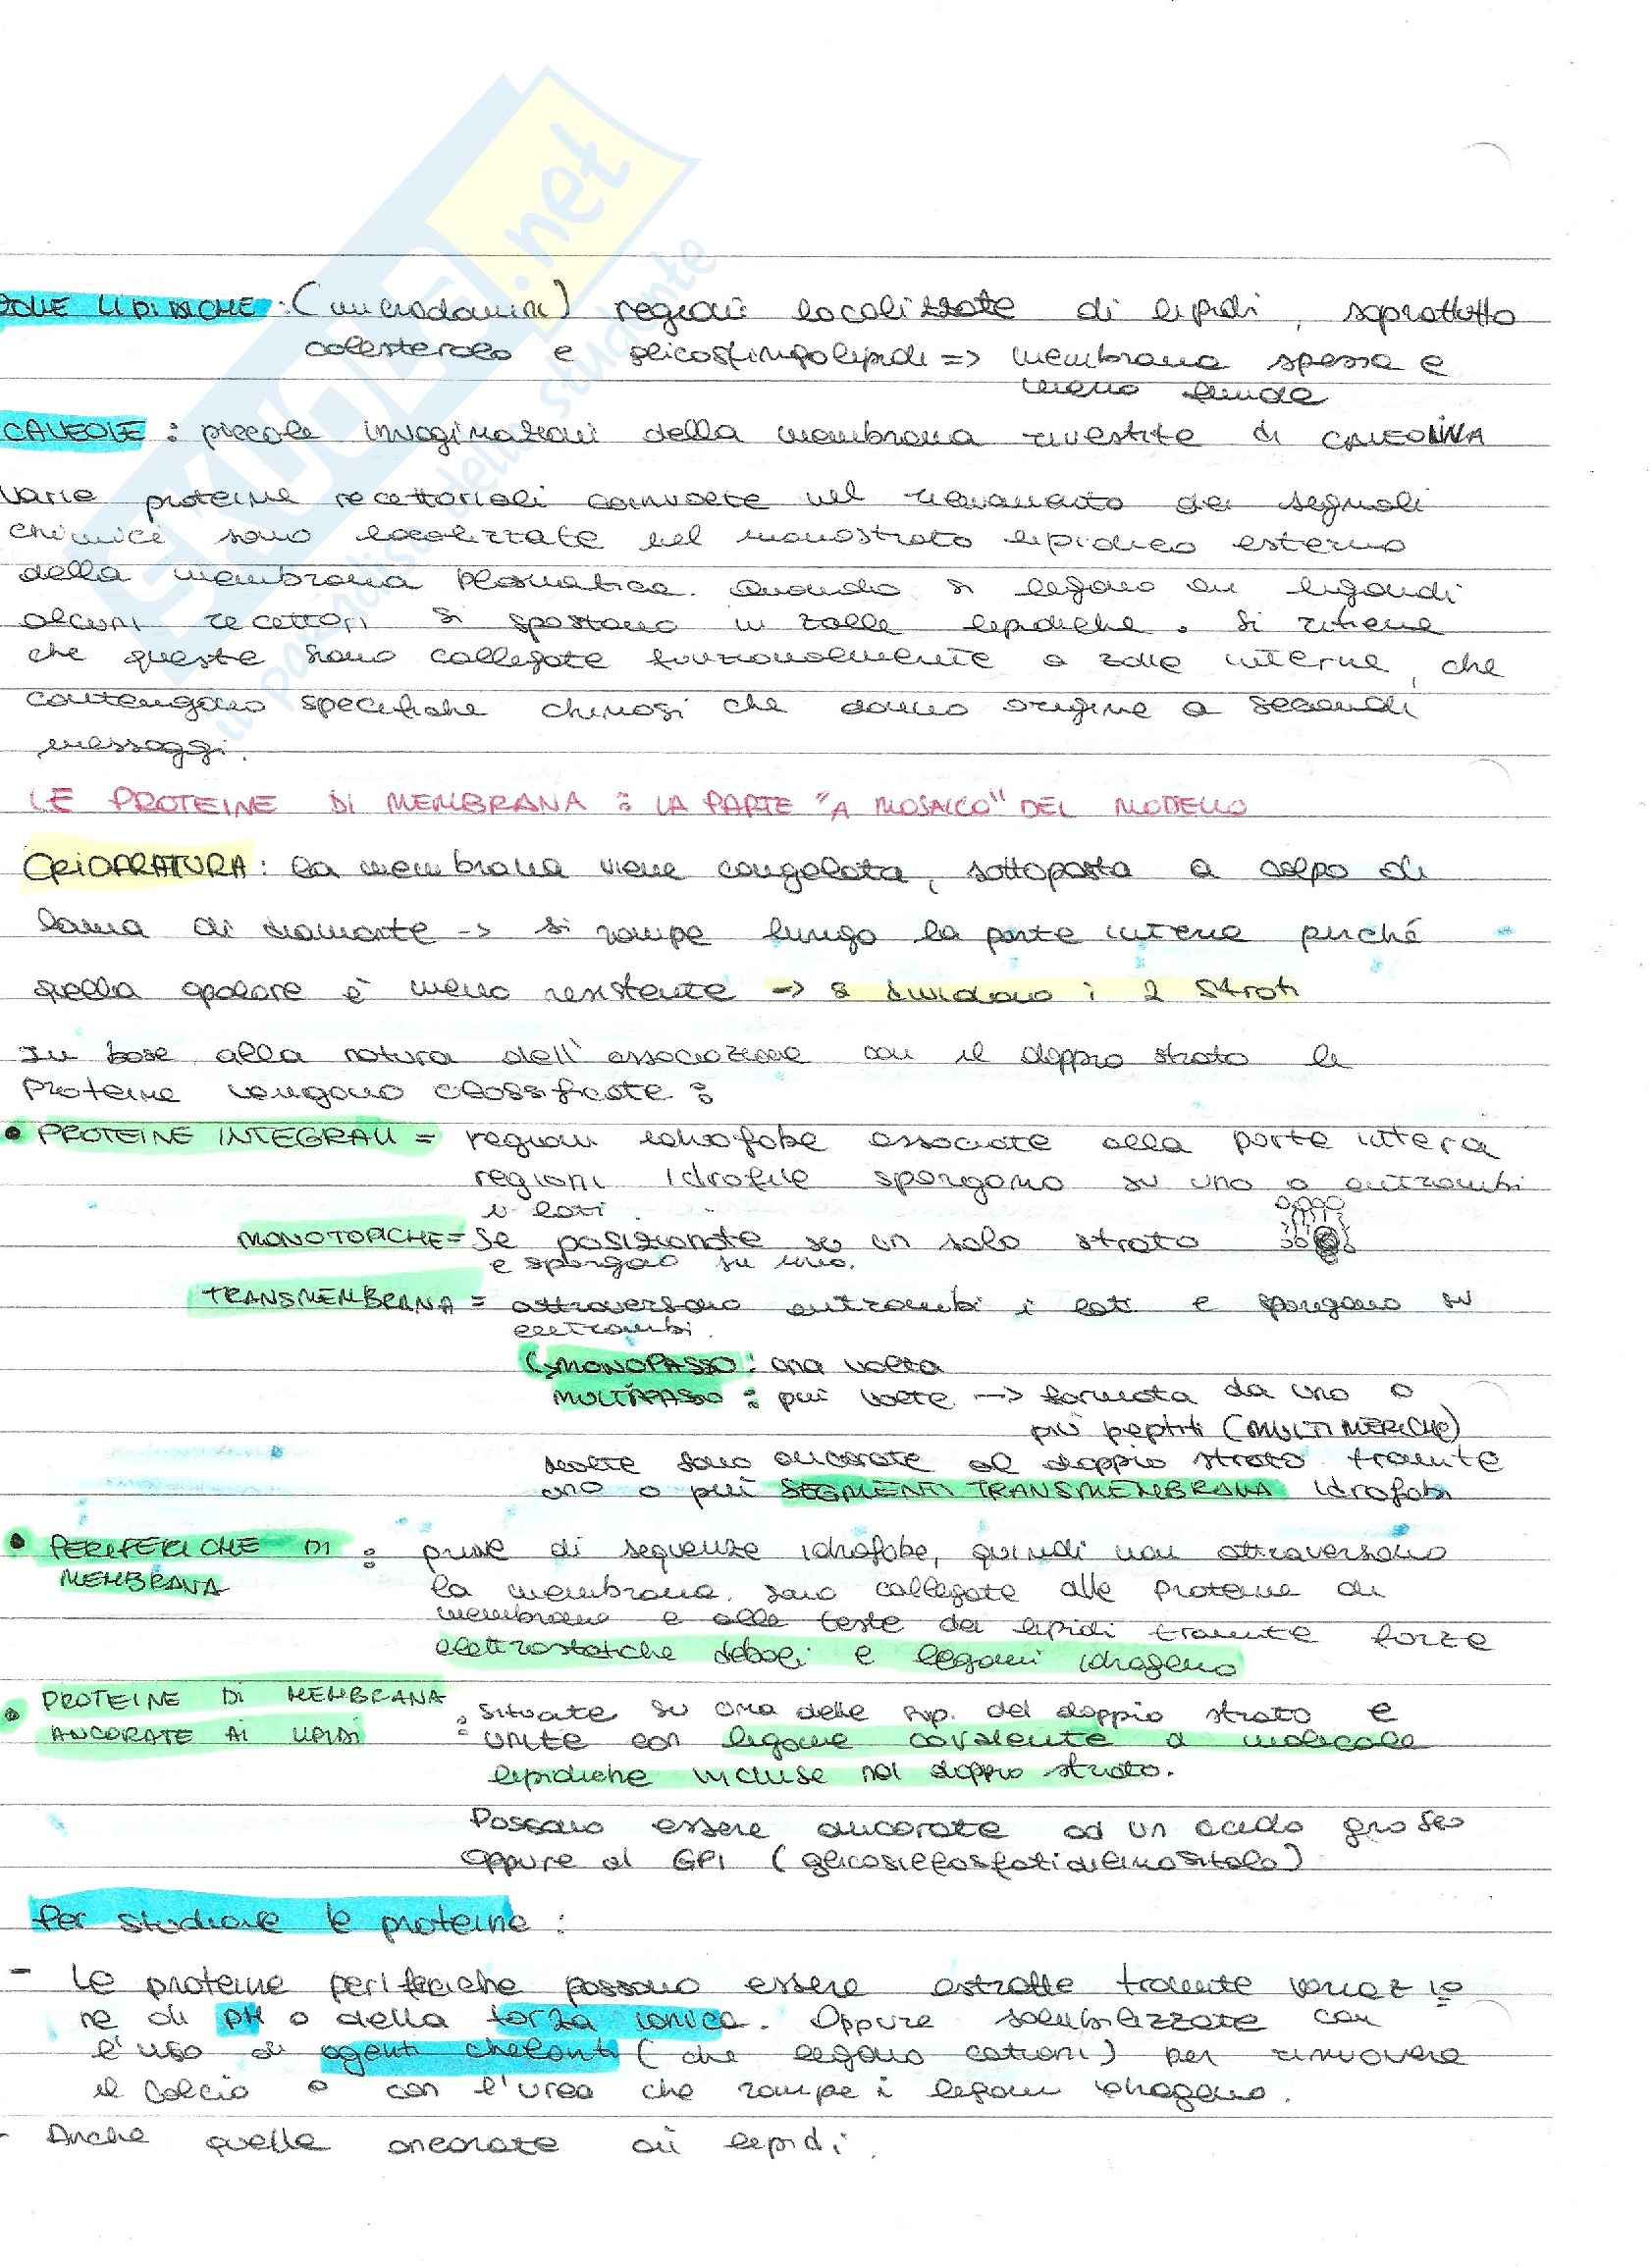 ZOLLE LIPIDICHE : (microdomini) regioni localizzate di lipidi, soprattutto
colesterolo e glicosfingolipidi => membrana spessa e
meno fluida
CAVEOLE : piccole invaginazioni della membrana rivestite di CAVEOLINA
Varie proteine recettoriali coinvolte nel rilevamento dei segnali
chimici sono localizzate nel monostrato lipidico esterno
della membrana plasmatica. Quando si legano ai ligandi
alcuni recettori si spostano in zolle lipidiche. Si ritiene
che queste siano collegate funzionalmente a zolle interne, che
contengano specifiche chinasi che danno origine a secondi
messaggi.
LE PROTEINE DI MEMBRANA : LA PARTE "A MOSAICO" DEL MODELLO
CRIOFRATTURA : la membrana viene congelata, sottoposta a colpo di
lama di diamante -> si rompe lungo la parte interna perché
quella apolare è meno resistente -> si dividono i 2 strati
In base alla natura dell'associazione con il doppio strato le
proteine vengono classificate :
• PROTEINE INTEGRALI = regioni idrofobe associate alla parte interna
regioni idrofile sporgono su uno o entrambi
i lati.
MONOTOPICHE = se posizionate su un solo strato
e sporgono su uno.
TRANSMEMBRANA = attraversano entrambi i lati e sporgono su
entrambi.
MONOPASSO : una volta
MULTIPASSO : più volte -> formata da uno o
più peptidi (MULTIMERICHE)
molte sono ancorate al doppio strato tramite
uno o più SEGMENTI TRANSMEMBRANA idrofobi
• PERIFERICHE DI : prive di sequenze idrofobe, quindi non attraversano
MEMBRANA la membrana. sono collegate alle proteine di
membrana e alle teste dei lipidi tramite forze
elettrostatiche deboli e legami idrogeno
• PROTEINE DI MEMBRANA : situate su una delle sup. del doppio strato e
ANCORATE AI LIPIDI unite con legame covalente a molecole
lipidiche incluse nel doppio strato.
Possono essere ancorate ad un acido grasso
oppure al GPI (glicosilfosfatidilinositolo)
Per studiare le proteine :
- Le proteine periferiche possono essere estratte tramite variazio
ne di pH o della forza ionica. Oppure solubilizzate con
l'uso di agenti chelanti (che legano cationi) per rimuovere
il calcio o con l'urea che rompe i legami idrogeno.
- Anche quelle ancorate ai lipidi.
SKUOLA.net